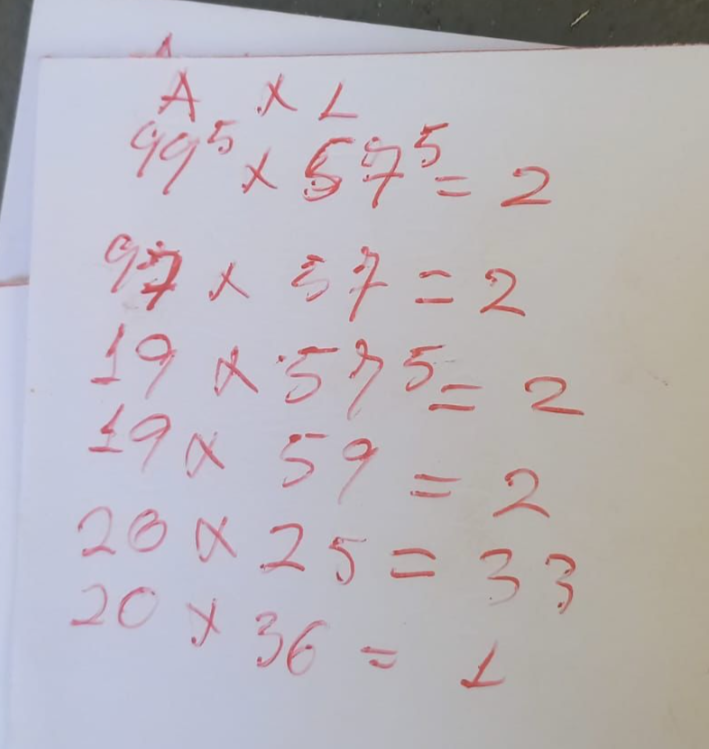 A x L
99⁵ x 57⁵ = 2
97 x 57 = 2
19 x 57⁵ = 2
19 x 59 = 2
20 x 25 = 33
20 x 36 = 1